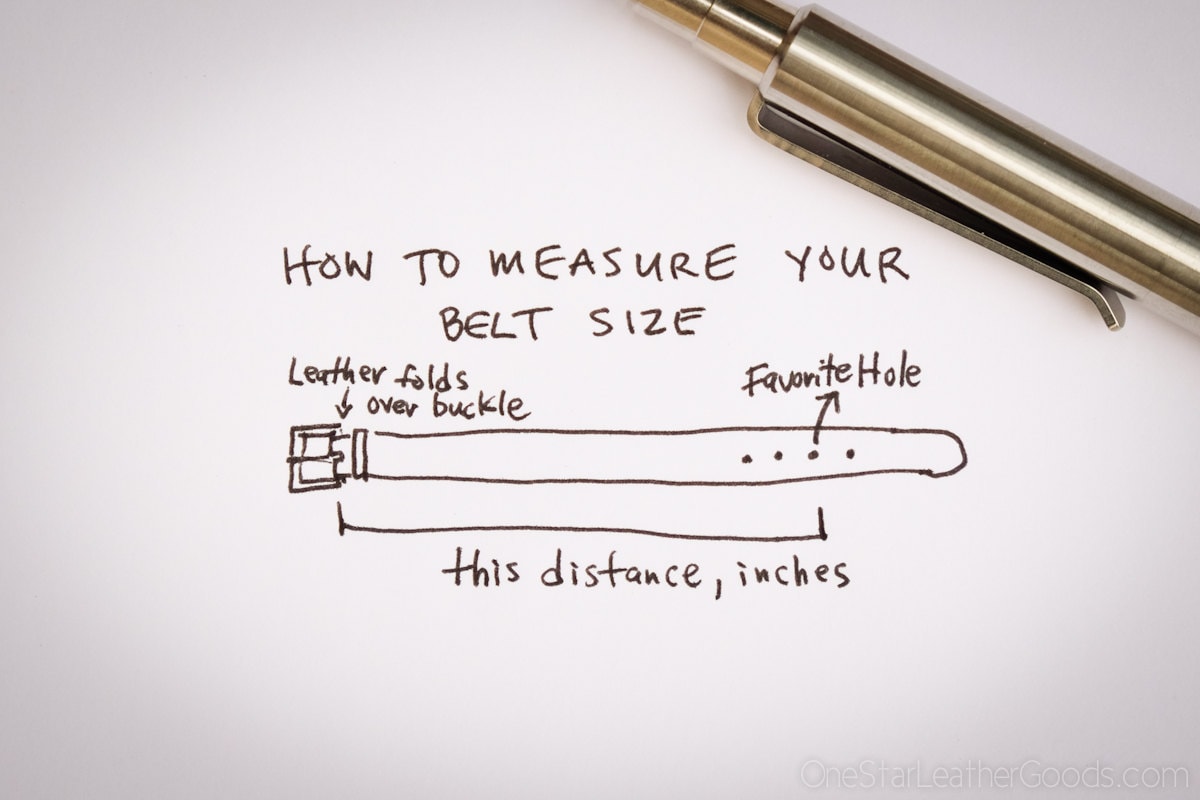 HOW TO MEASURE YOUR
BELT SIZE
Leather folds
over buckle
Favorite Hole
this distance, inches
OneStarLeatherGoods.com